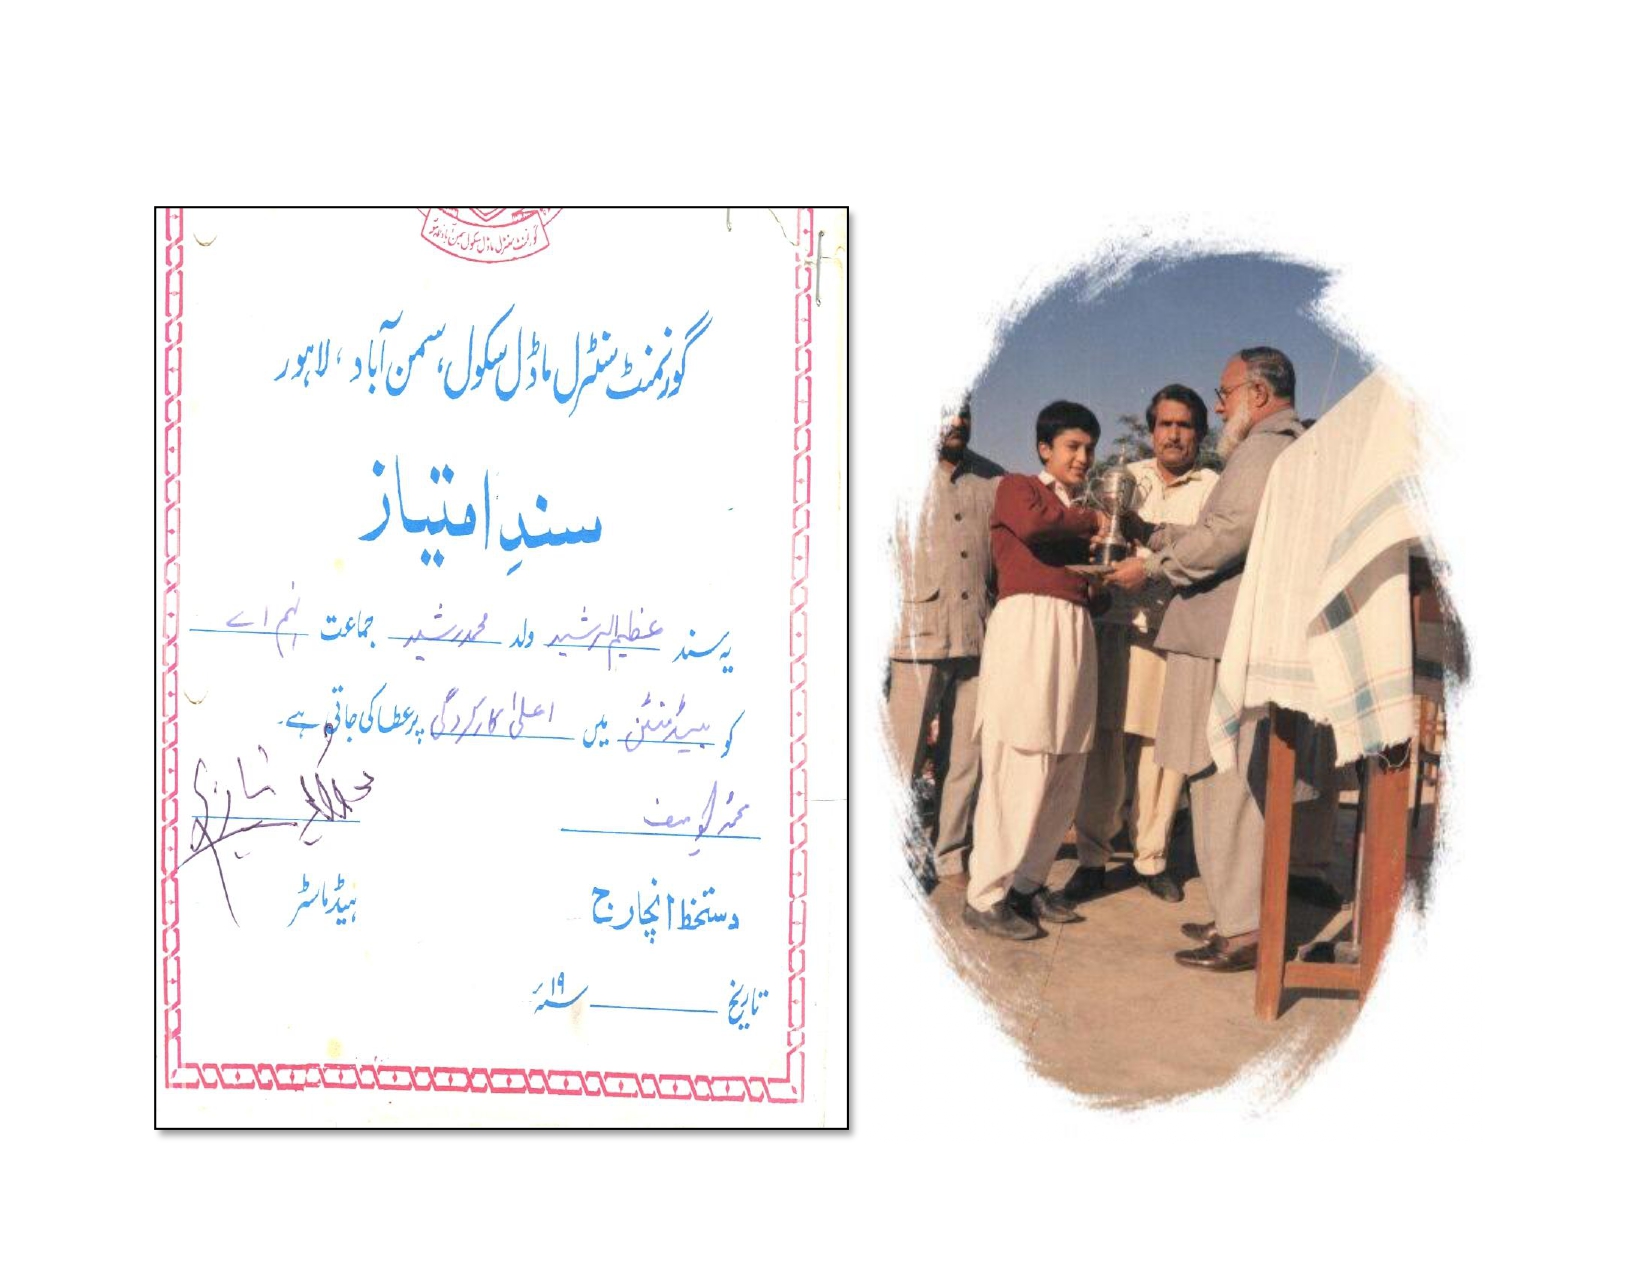 گورنمنٹ سنٹرل ماڈل سکول سمن آباد لاہور
گورنمنٹ سنٹرل ماڈل سکول، سمن آباد، لاہور
سندِ امتیاز
یہ سند عظیم الرشید ولد محمد رشید جماعت نہم اے
کو بیڈمنٹن میں اعلیٰ کارکردگی پر عطا کی جاتی ہے۔
محمد یوسف
دستخط انچارج ہیڈ ماسٹر
تاریخ ۱۹ء